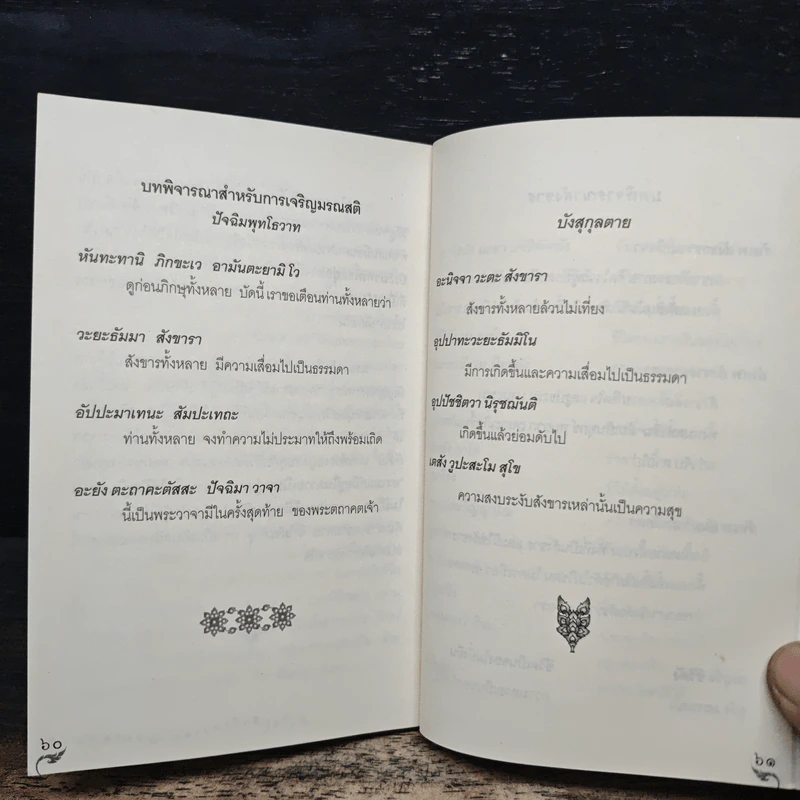 บทพิจารณาสำหรับการเจริญมรณสติ
ปัจฉิมพุทโธวาท
หันทะทานิ ภิกขะเว อามันตะยามิ โว
ดูก่อนภิกษุทั้งหลาย บัดนี้ เราขอเตือนท่านทั้งหลายว่า
วะยะธัมมา สังขารา
สังขารทั้งหลาย มีความเสื่อมไปเป็นธรรมดา
อัปปะมาเทนะ สัมปะเทถะ
ท่านทั้งหลาย จงทำความไม่ประมาทให้ถึงพร้อมเถิด
อะยัง ตะถาคะตัสสะ ปัจฉิมา วาจา
นี้เป็นพระวาจามีในครั้งสุดท้าย ของพระตถาคตเจ้า
๖๐
บังสุกุลตาย
อะนิจจา วะตะ สังขารา
สังขารทั้งหลายล้วนไม่เที่ยง
อุปปาทะวะยะธัมมิโน
มีการเกิดขึ้นและความเสื่อมไปเป็นธรรมดา
อุปปัชชิตวา นิรุชฌันติ
เกิดขึ้นแล้วย่อมดับไป
เตสัง วูปะสะโม สุโข
ความสงบระงับสังขารเหล่านั้นเป็นความสุข
๖๑